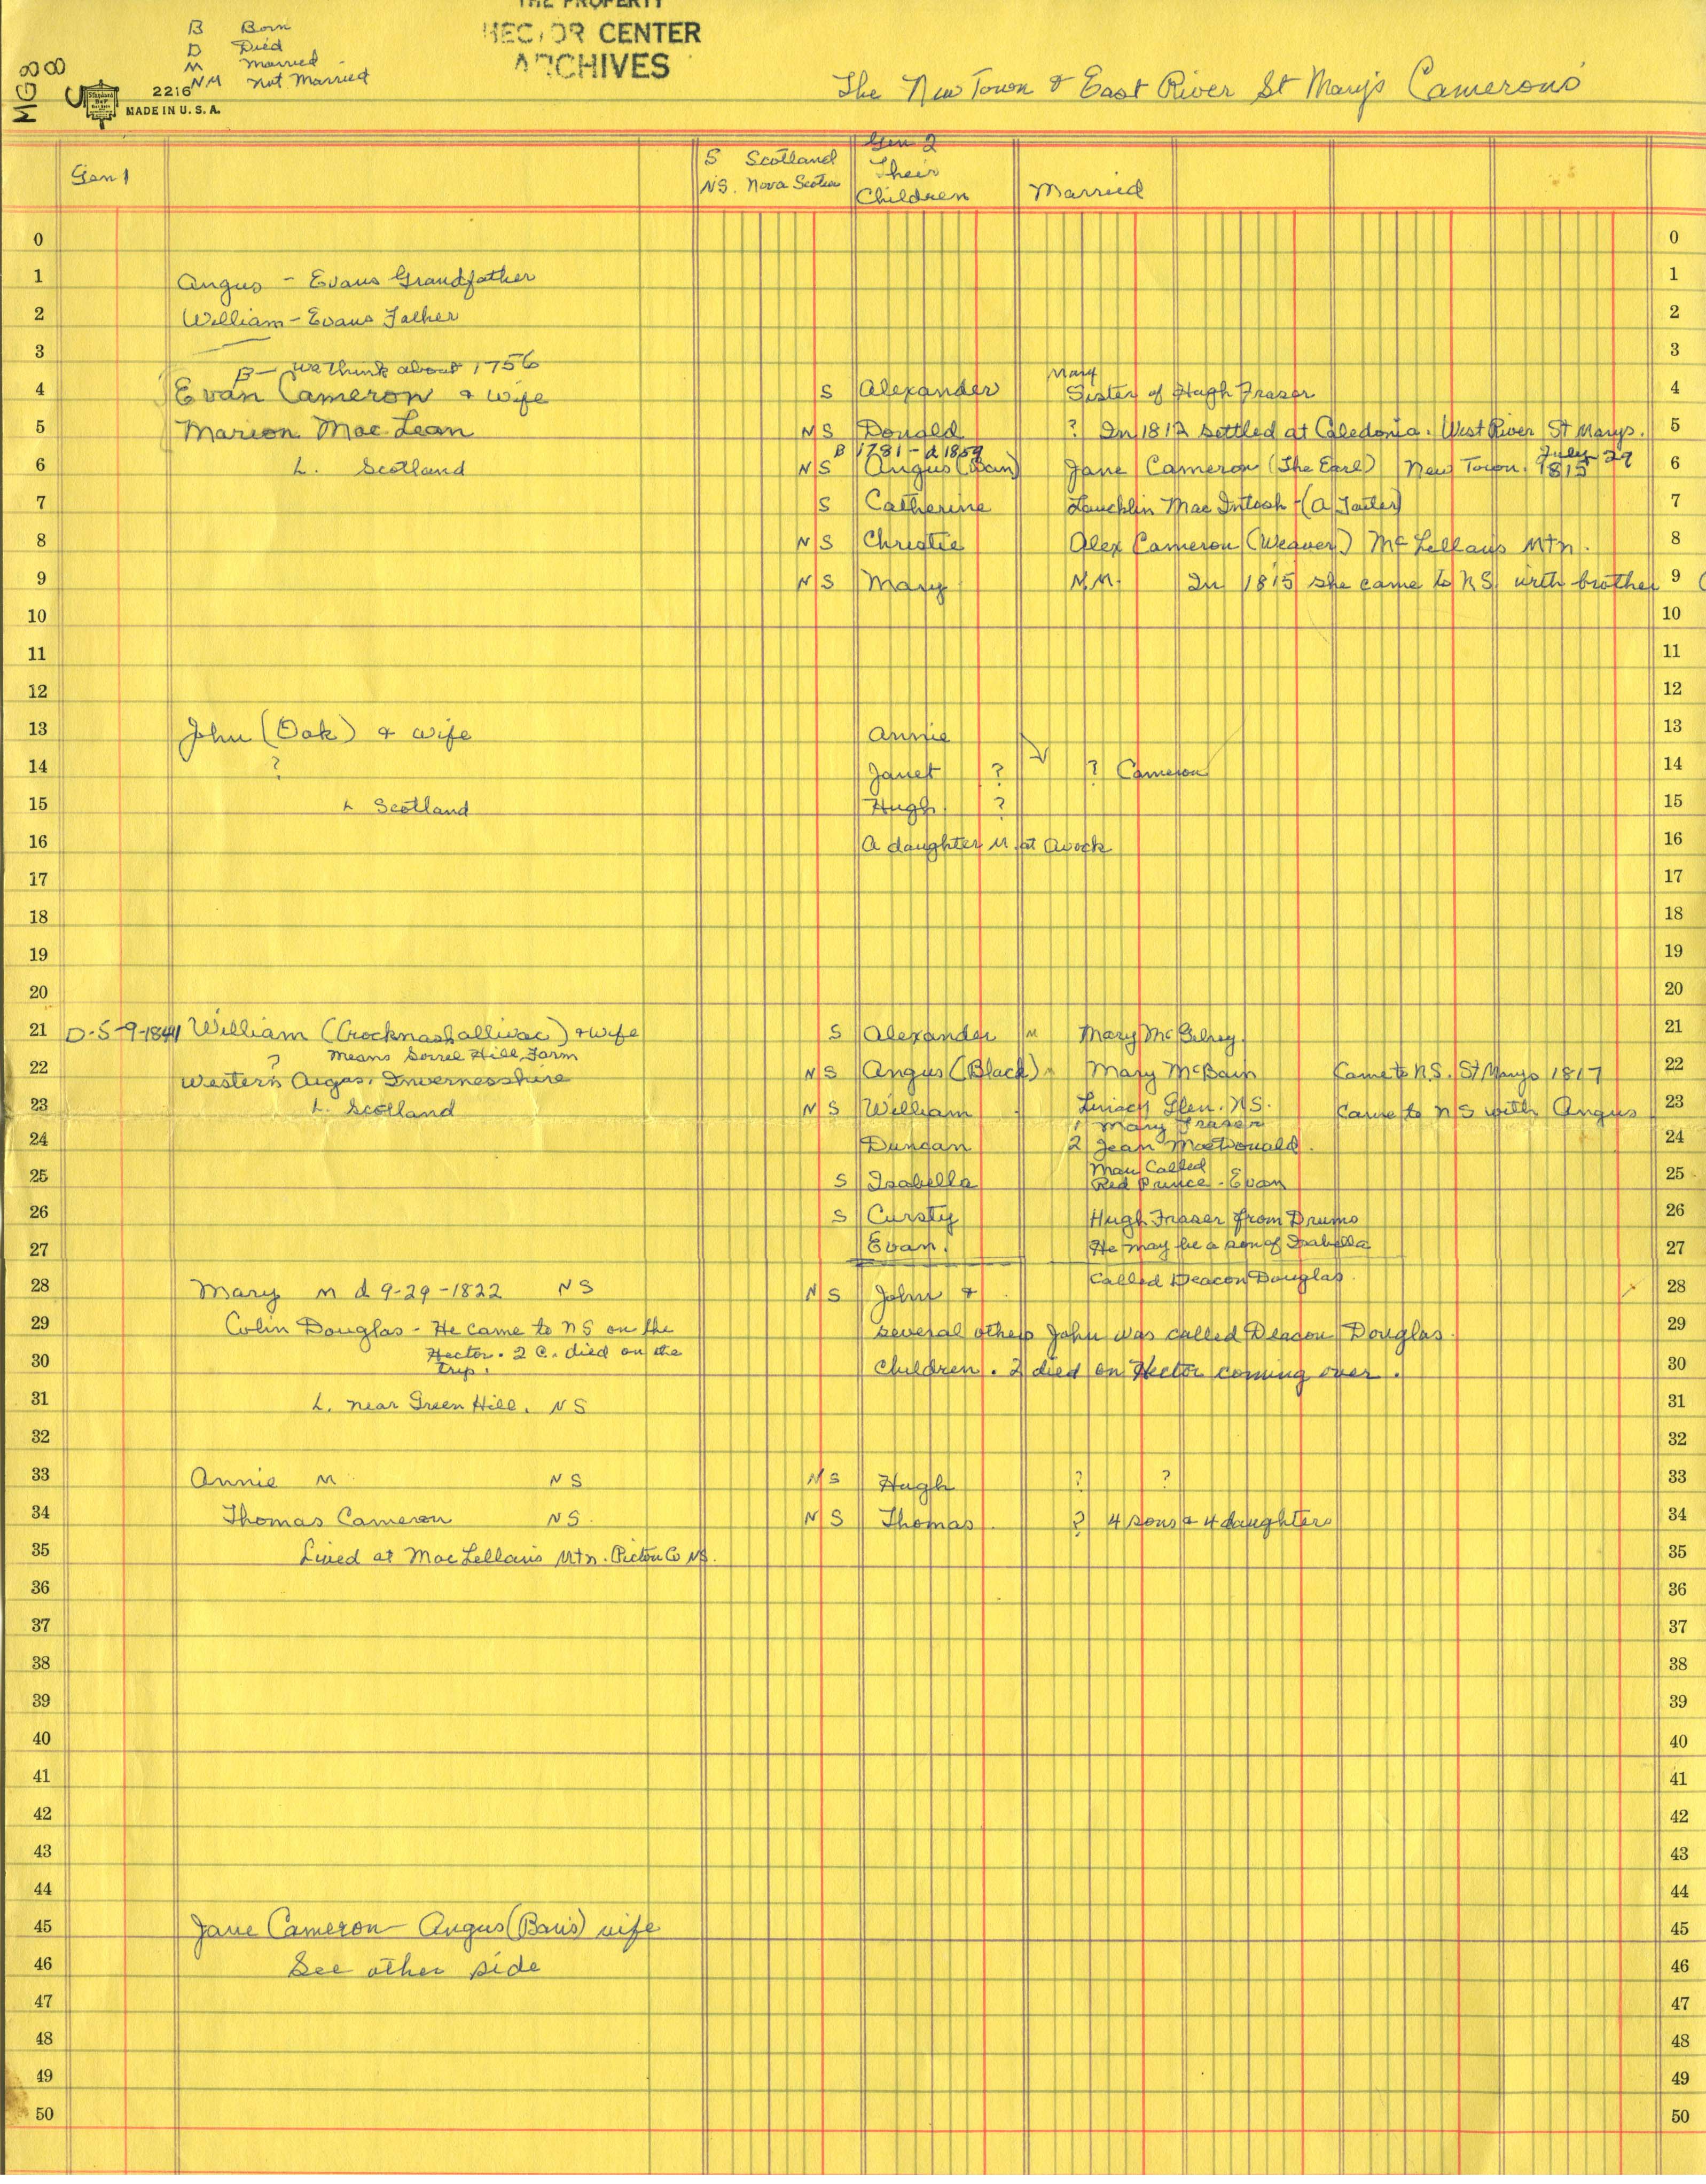 THE PROPERTY
HECTOR CENTER
ARCHIVES
B Born
D Died
M Married
NM Not Married
MG 8 8
2216
MADE IN U. S. A.
The New Town & East River St Mary's Camerons
Gen 1
S Scotland
NS. Nova Scotia
Gen 2
Their
Children
Married
0 0
1 Angus - Evans Grandfather 1
2 William - Evans Father 2
3 3
B - we think about 1756
Mary
4 Evan Cameron & wife S Alexander Sister of Hugh Fraser 4
5 Marion Mac Lean NS Donald ? In 1812 settled at Caledonia. West River St Marys. 5
B 1781 - d 1859 July 29
6 L. Scotland NS Angus (Ban) Jane Cameron (The Earl) New Town. 1815 6
7 S Catherine Lauchlin Mac Intosh - (A Tailer) 7
8 NS Christie Alex Cameron (Weaver) Mc Lellans Mtn. 8
9 NS Mary N.M. In 1815 she came to N.S. with brother 9
10 10
11 11
12 12
13 John (Oak) & wife Annie 13
14 ? Janet ? ? Cameron 14
15 L Scotland Hugh. ? 15
16 A daughter M. at Avock 16
17 17
18 18
19 19
20 20
21 D-5-9-1841 William (Crocknashallivac) & wife S Alexander M Mary McGilvey. 21
? means Sorrel Hill Farm
22 Western Aigas. Invernesshire NS Angus (Black) Mary McBain Came to N.S. St Marys 1817 22
23 L. Scotland NS William Glen. NS. Came to NS with Angus 23
1 Mary Fraser
24 Duncan 2 Jean MacDonald. 24
Man Called
25 S Isabella Red Prince - Evan 25
26 S Cursty Hugh Fraser from Drums 26
27 Evan. He may be a son of Isabella 27
Called Deacon Douglas.
28 Mary M d 9-29-1822 NS NS John & 28
29 Colin Douglas - He came to NS on the several others John was called Deacon Douglas. 29
30 Hector. 2 C. died on the children. 2 died on Hector coming over. 30
trip.
31 L. near Green Hill. NS 31
32 32
33 Annie M NS NS Hugh ? ? 33
34 Thomas Cameron NS. NS Thomas. ? 4 sons & 4 daughters 34
35 Lived at Mac Lellans Mtn. Pictou Co NS. 35
36 36
37 37
38 38
39 39
40 40
41 41
42 42
43 43
44 44
45 Jane Cameron - Angus (Bans) wife 45
46 See other side 46
47 47
48 48
49 49
50 50